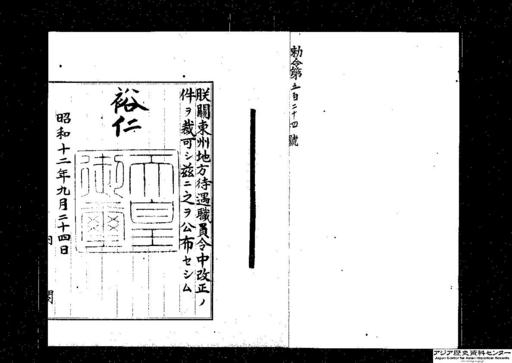 勅令第五百二十四號
朕關東州地方待遇職員令中改正ノ
件ヲ裁可シ茲ニ之ヲ公布セシム
裕仁
天皇
御璽
昭和十二年九月二十四日
内
閣
アジア歴史資料センター
Japan Center for Asian Historical Records